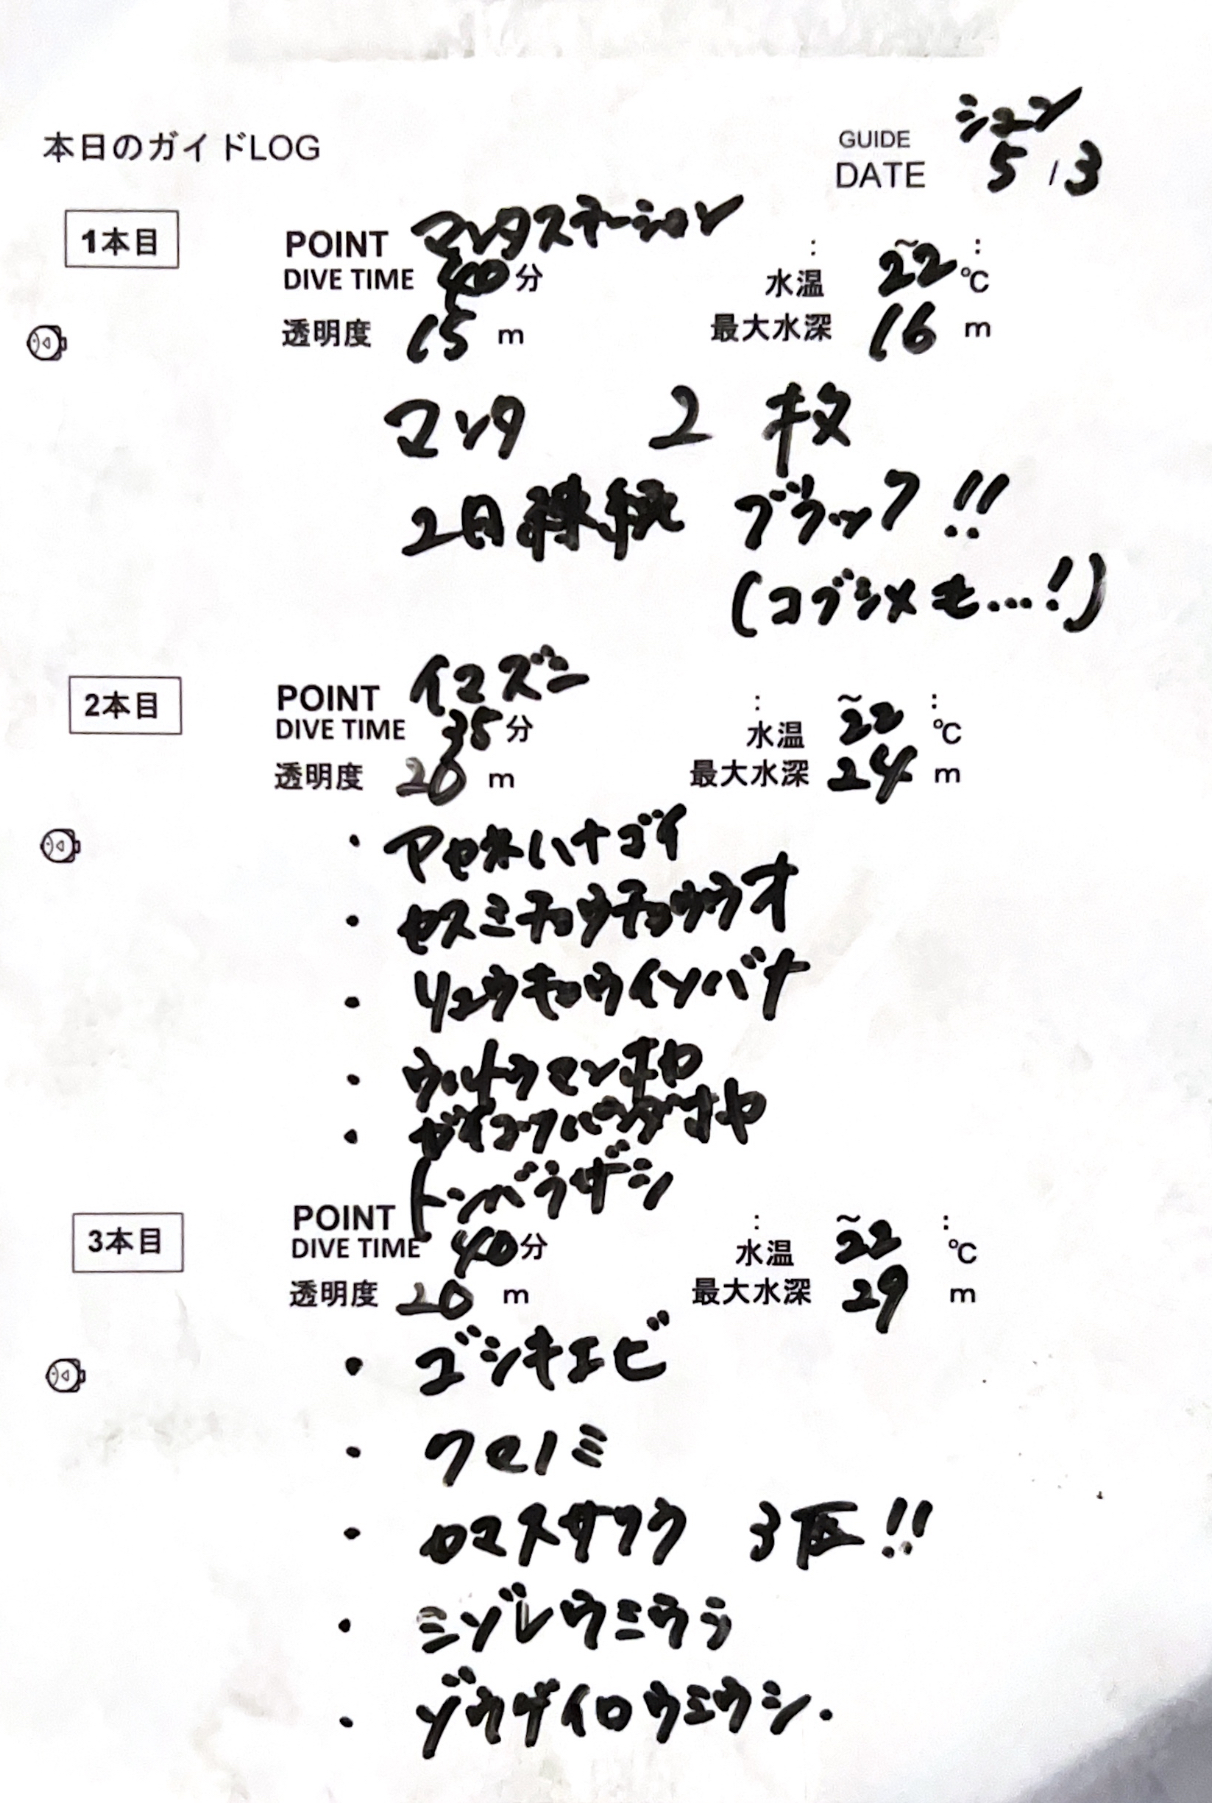 本日のガイドLOG
GUIDE シュン
DATE 5/3
1本目
POINT マンタステーション : ~ :
DIVE TIME 40分 水温 22℃
透明度 15 m 最大水深 16 m
マンタ 2枚
2日連続 ブラック!!
(コブシメも...!)
2本目
POINT イマズニ : ~ :
DIVE TIME 35分 水温 22℃
透明度 20 m 最大水深 24 m
・アカネハナゴイ
・カスミチョウチョウウオ
・リュウキュウイソバナ
・ウルトラマンホヤ
・ガイコツパンダホヤ
3本目
POINT トンバラザシ : ~ :
DIVE TIME 40分 水温 22℃
透明度 20 m 最大水深 29 m
・ゴシキエビ
・クマノミ
・カマスサワラ 3匹!!
・ミゾレウミウシ
・ゾウゲイロウミウシ.